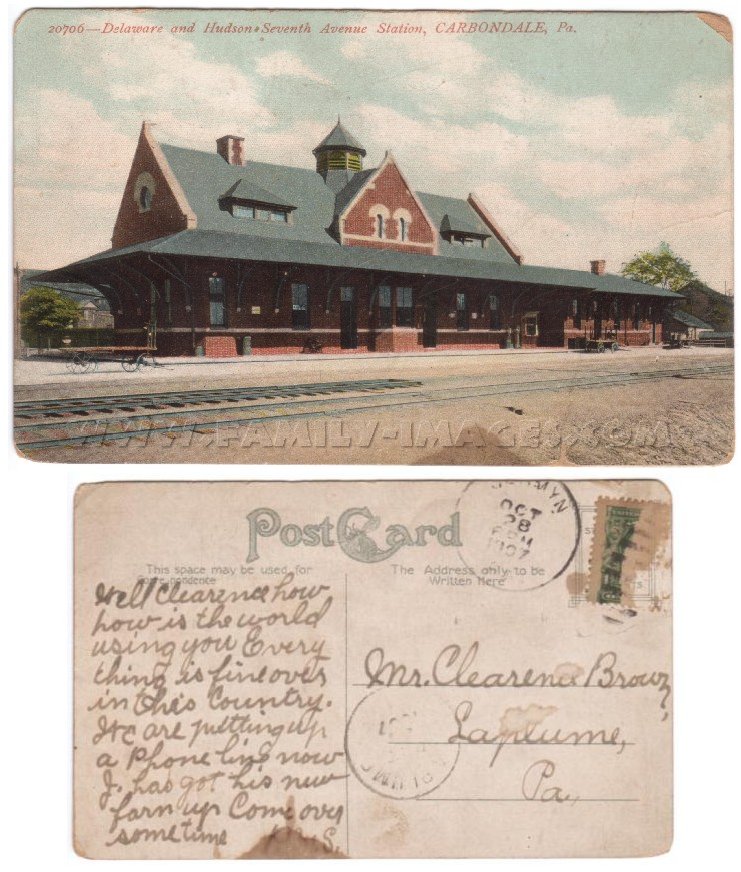 20706—Delaware and Hudson Seventh Avenue Station, CARBONDALE, Pa.
WWW.FAMILY-IMAGES.COM
Post Card
This space may be used for
Correspondence
The Address only to be
Written Here
OCT
28
1907
Well Clearence how
how is the world
using you Every
thing is fine over
in this Country.
We are putting up
a Phone line now
J. has got his new
farn up Come over
some time S.
Mr. Clearence Brown,
Laplume,
Pa.
PLUM